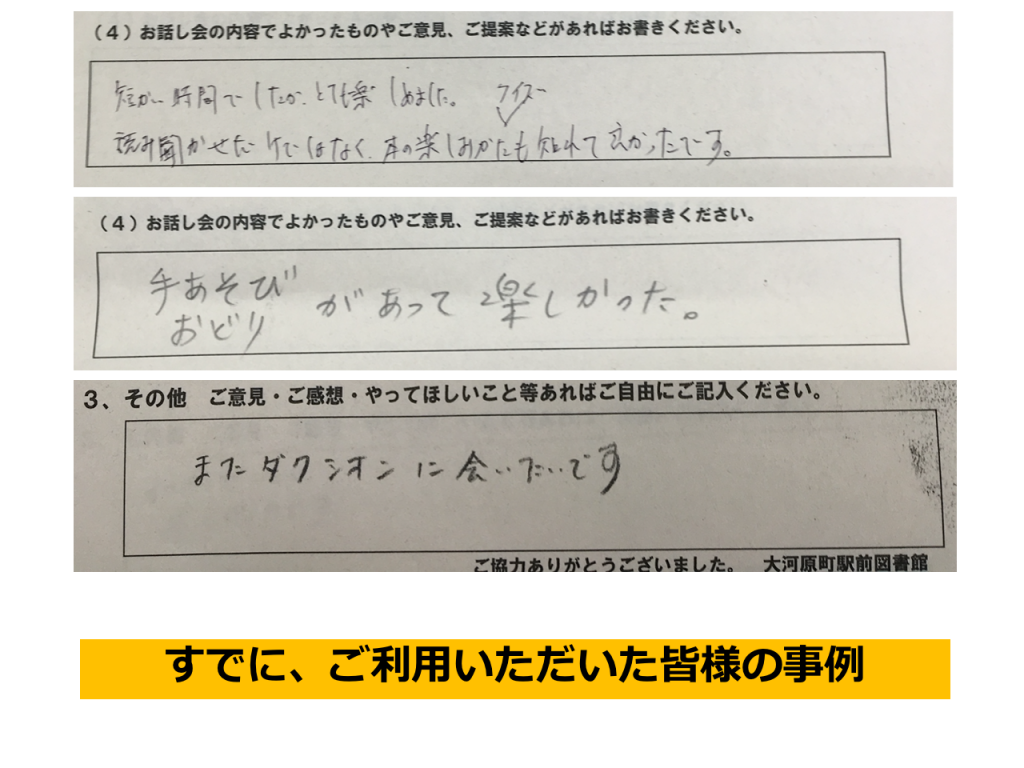 (４) お話し会の内容でよかったものやご意見、ご提案などがあればお書きください。
短かい時間でしたが、とても楽しめました。
クイズ
読み聞かせだけではなく、本の楽しみかたも知れて良かったです。
(４) お話し会の内容でよかったものやご意見、ご提案などがあればお書きください。
手あそび
おどり
があって楽しかった。
３、その他　ご意見・ご感想・やってほしいこと等あればご自由にご記入ください。
またダクシオンに会いたいです
ご協力ありがとうございました。　大河原町駅前図書館
すでに、ご利用いただいた皆様の事例